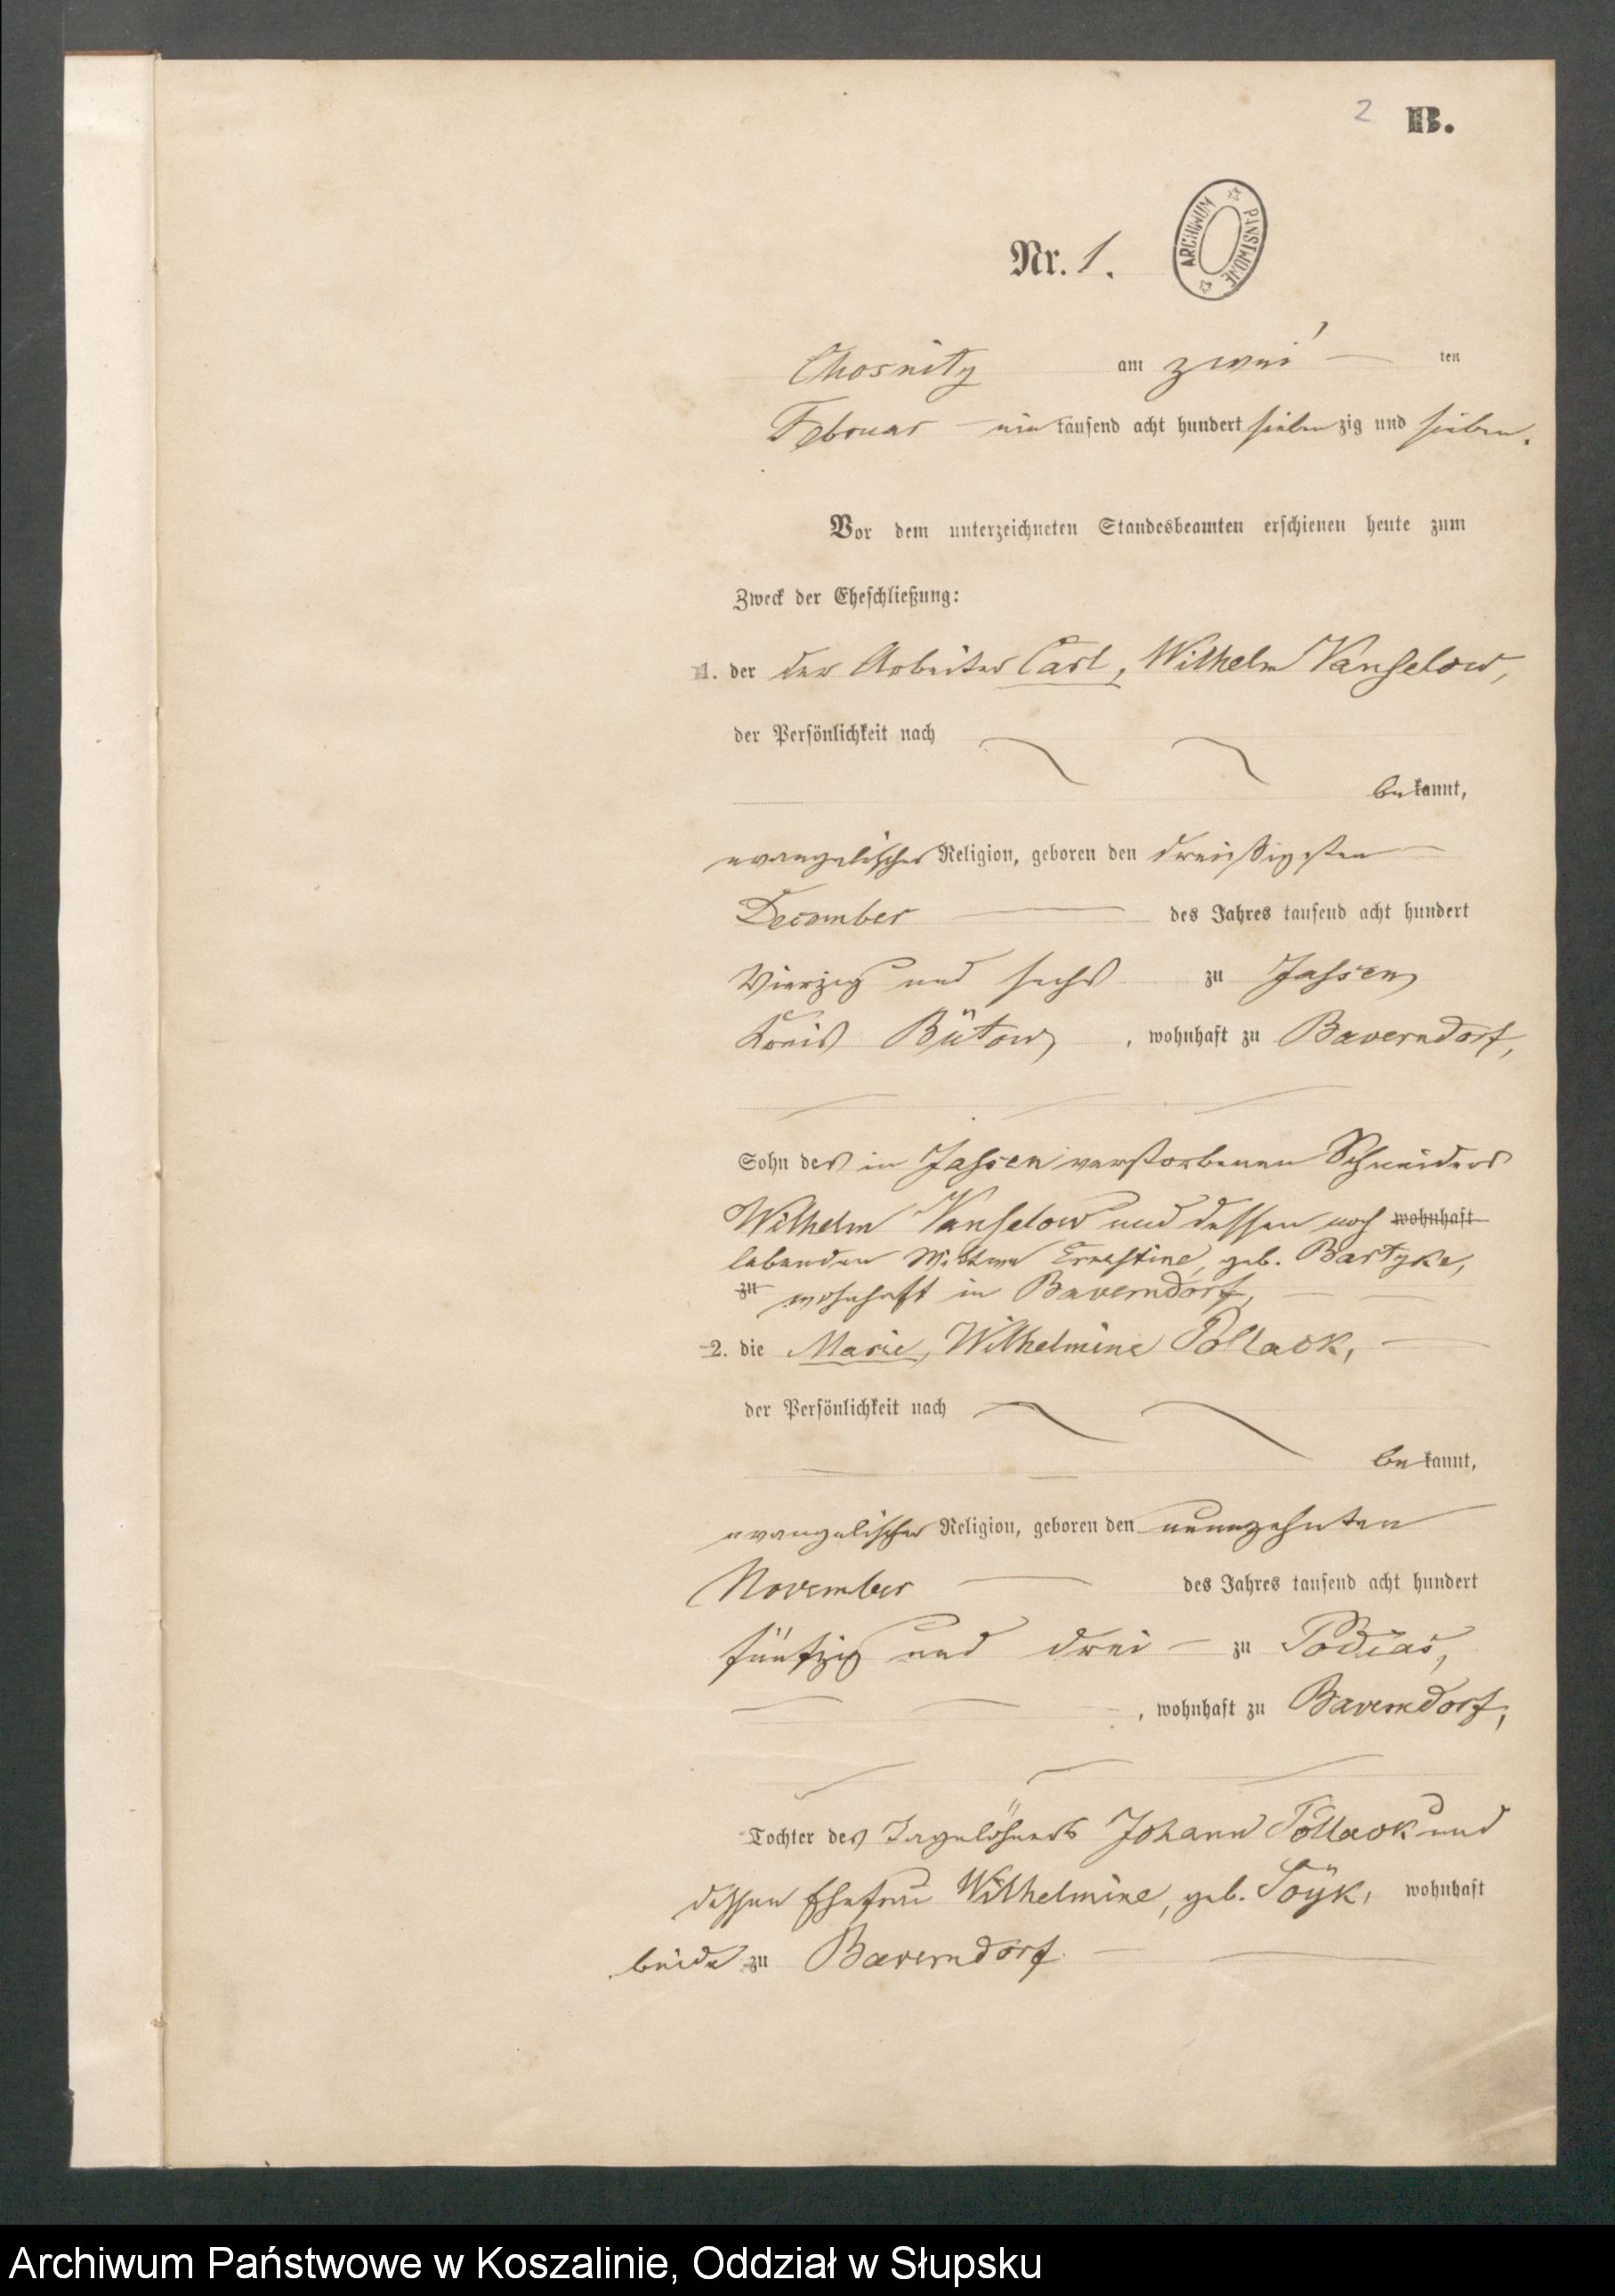 2 B.
Nr. 1.
ARCHIWUM PAŃSTWOWE
Chosnitz am zwei ten
Februar ein tausend acht hundert sieben zig und sieben.
Vor dem unterzeichneten Standesbeamten erschienen heute zum
Zweck der Eheschließung:
1. der der Arbeiter Carl, Wilhelm Vanselow,
der Persönlichkeit nach
be kannt,
evangelischer Religion, geboren den dreißigsten
December des Jahres tausend acht hundert
Vierzig und sechs zu Jassen
Kreis Bütow, wohnhaft zu Baverndorf,
Sohn des in Jassen verstorbenen Schneiders
Wilhelm Vanselow und dessen noch wohnhaft
lebenden Wittwe Ernestine, geb. Bartzke,
zu wohnhaft in Baverndorf,
2. die Marie, Wilhelmine Pollack,
der Persönlichkeit nach
be kannt,
evangelischer Religion, geboren den neunzehnten
November des Jahres tausend acht hundert
fünfzig und drei zu
, wohnhaft zu Baverndorf,
Tochter des Tagelöhners Johann Pollack und
dessen Ehefrau Wilhelmine, geb. wohnhaft
beide zu Baverndorf
Archiwum Państwowe w Koszalinie, Oddział w Słupsku